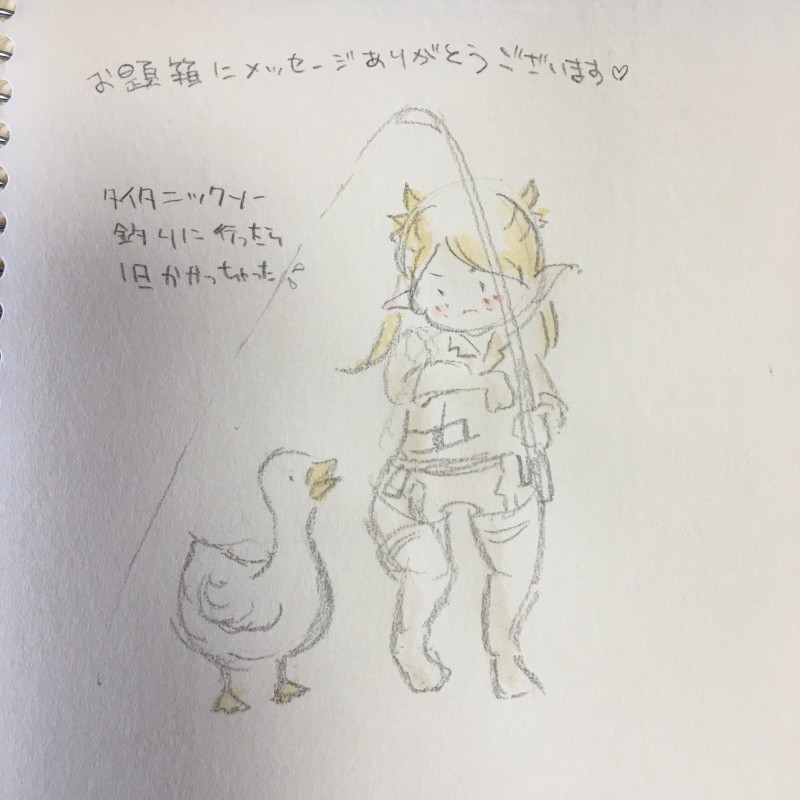 お題箱にメッセージありがとうございます♡
タイタニックソー
釣りに行ったら
1日かかっちゃった♪